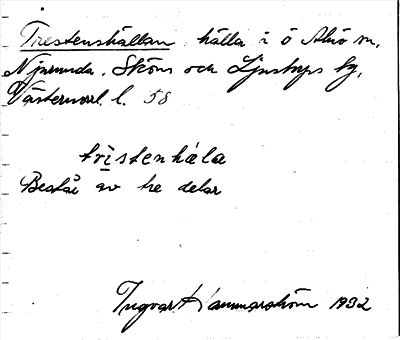 Trestenshällan, hälla i ö Alnö sn,
Njurunda, Sköns och Ljustorps tg,
Västernorrl. l. 58
trìstenhæla
Består av tre delar
Ingvar Hammarström 1932